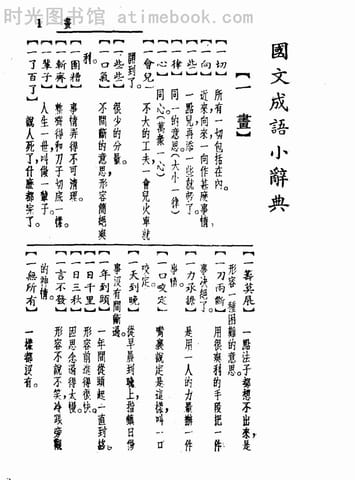 时光图书馆 atimebook.com
1 畫
國文成語小辭典
【一畫】
【一切】 所有一切包括在內。
【一向】 近來，向來，一向作甚麼事情，
【一些】 一點兒再添一些就够了。
【一律】 同一的意思。（大小一律）
【一心】 同心。（萬衆一心）
【一會兒】 不大的工夫，一會兒火車就
開到了。
【一些些】 很少的分量。
【一口氣】 不間斷的意思，形容簡絕爽
利。
【一團糟】 事情弄得不可清理。
【一斬齊】 整齊得和刀子切底一樣。
【一輩子】 人生一世叫做一輩子。
【一了百了】 說人死了，什麼都完了。
【一籌莫展】 一點法子都想不出來，是
形容一種困難的意思。
【一刀兩斷】 用很爽利的手段把一件
事决絕了。
【一力承擔】 是用一人的力量辦一件
事情。
【一口咬定】 嘴裏說定是這樣，叫一口
咬定。
【一天到晚】 從早晨到晚上，指鎮日價
事沒有間斷過。
【一年到頭】 一年間從頭起一直到底。
【一日千里】 形容前進得很快。
【一日三秋】 因思念過得太慢。
【一言不發】 形容不說不笑，冷眼旁觀
的神情。
【一無所有】 一樣都沒有。